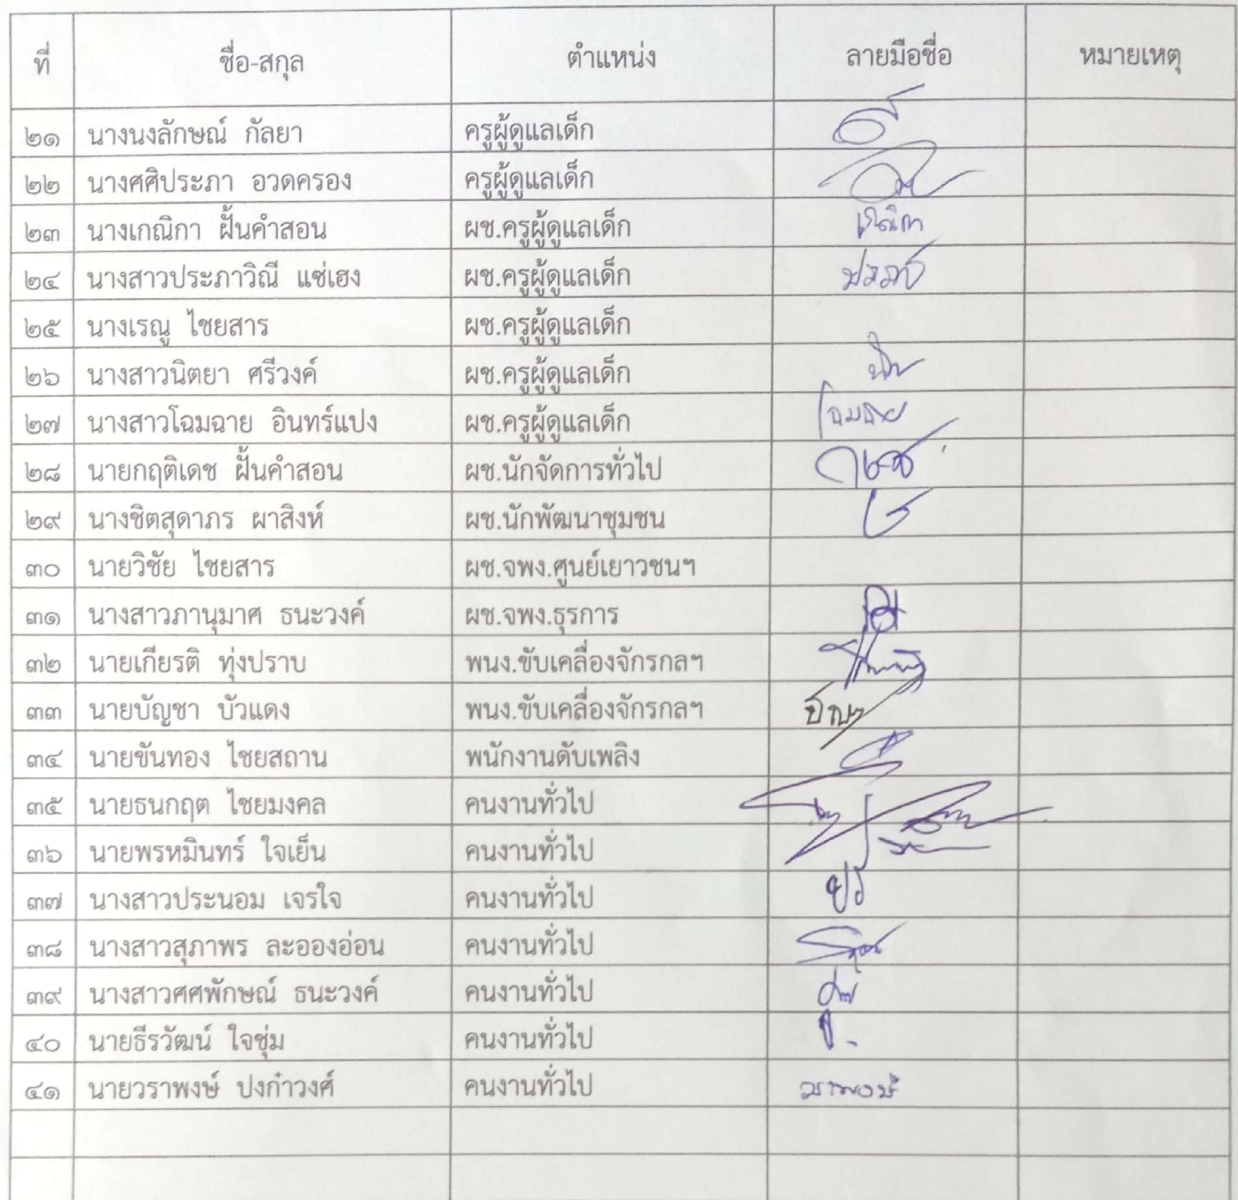 ที่ ชื่อ-สกุล ตำแหน่ง ลายมือชื่อ หมายเหตุ
๒๑ นางนงลักษณ์ กัลยา ครูผู้ดูแลเด็ก
๒๒ นางศศิประภา อวดครอง ครูผู้ดูแลเด็ก
๒๓ นางเกณิกา ฝั้นคำสอน ผช.ครูผู้ดูแลเด็ก เกณิกา
๒๔ นางสาวประภาวิณี แซ่เฮง ผช.ครูผู้ดูแลเด็ก
๒๕ นางเรณู ไชยสาร ผช.ครูผู้ดูแลเด็ก
๒๖ นางสาวนิตยา ศรีวงค์ ผช.ครูผู้ดูแลเด็ก
๒๗ นางสาวโฉมฉาย อินทร์แปง ผช.ครูผู้ดูแลเด็ก โฉมฉาย
๒๘ นายกฤติเดช ฝั้นคำสอน ผช.นักจัดการทั่วไป
๒๙ นางชิตสุดาภร ผาสิงห์ ผช.นักพัฒนาชุมชน
๓๐ นายวิชัย ไชยสาร ผช.จพง.ศูนย์เยาวชนฯ
๓๑ นางสาวภานุมาศ ธนะวงค์ ผช.จพง.ธุรการ
๓๒ นายเกียรติ ทุ่งปราบ พนง.ขับเคลื่องจักรกลฯ
๓๓ นายบัญชา บัวแดง พนง.ขับเคลื่องจักรกลฯ
๓๔ นายขันทอง ไชยสถาน พนักงานดับเพลิง
๓๕ นายธนกฤต ไชยมงคล คนงานทั่วไป
๓๖ นายพรหมินทร์ ใจเย็น คนงานทั่วไป
๓๗ นางสาวประนอม เจรใจ คนงานทั่วไป
๓๘ นางสาวสุภาพร ละอองอ่อน คนงานทั่วไป
๓๙ นางสาวศศพักษณ์ ธนะวงค์ คนงานทั่วไป
๔๐ นายธีรวัฒน์ ใจชุ่ม คนงานทั่วไป
๔๑ นายวราพงษ์ ปงก๋าวงศ์ คนงานทั่วไป วราพงษ์